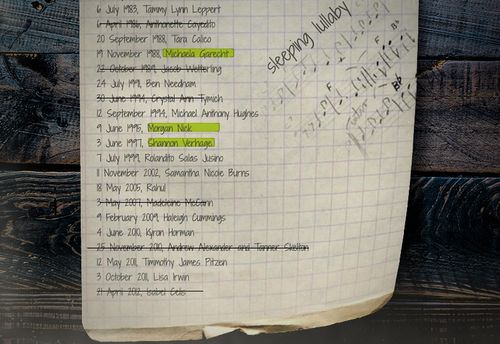 6 July 1983, Tammy Lynn Leppert
6 April 1986, Anthonette Cayedito
20 September 1988, Tara Calico
19 November 1988, Michaela Garecht
22 October 1989, Jacob Wetterling
24 July 1991, Ben Needham
30 June 1994, Crystal Ann Tymich
12 September 1994, Michael Anthony Hughes
9 June 1995, Morgan Nick
3 June 1997, Shannon Verhage
7 July 1999, Rolandito Salas Jusino
11 November 2002, Samantha Nicole Burns
18 May 2005, Rahul
3 May 2007, Madeleine McCann
9 February 2009, Haleigh Cummings
4 June 2010, Kyron Horman
25 November 2010, Andrew Alexander and Tanner Skelton
12 May 2011, Timmothy James Pitzen
3 October 2011, Lisa Irwin
21 April 2012, Isabel Celis
sleeping lullaby